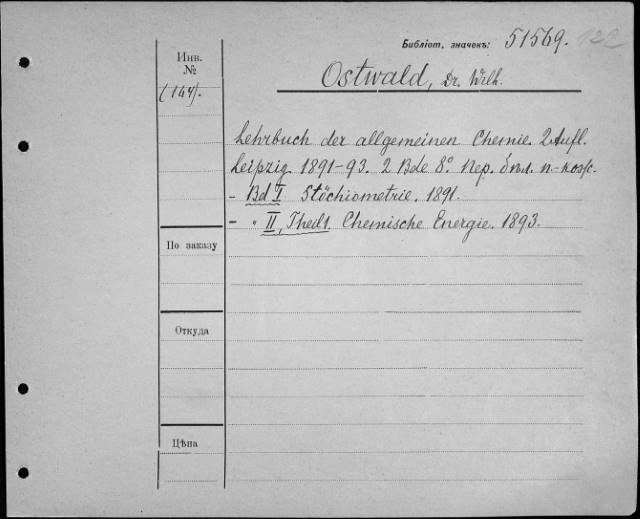 Библіот. значекъ: 51569. 122
Инв.
№
(164).
Ostwald, Dr. Wilh.
Lehrbuch der allgemeinen Chemie. 2 Aufl.
Leipzig 1891-93. 2 Bde 8° Пер.
- Bd I. Stöchiometrie. 1891.
- " II, Theil 1. Chemische Energie. 1893.
По заказу
Откуда
Цѣна